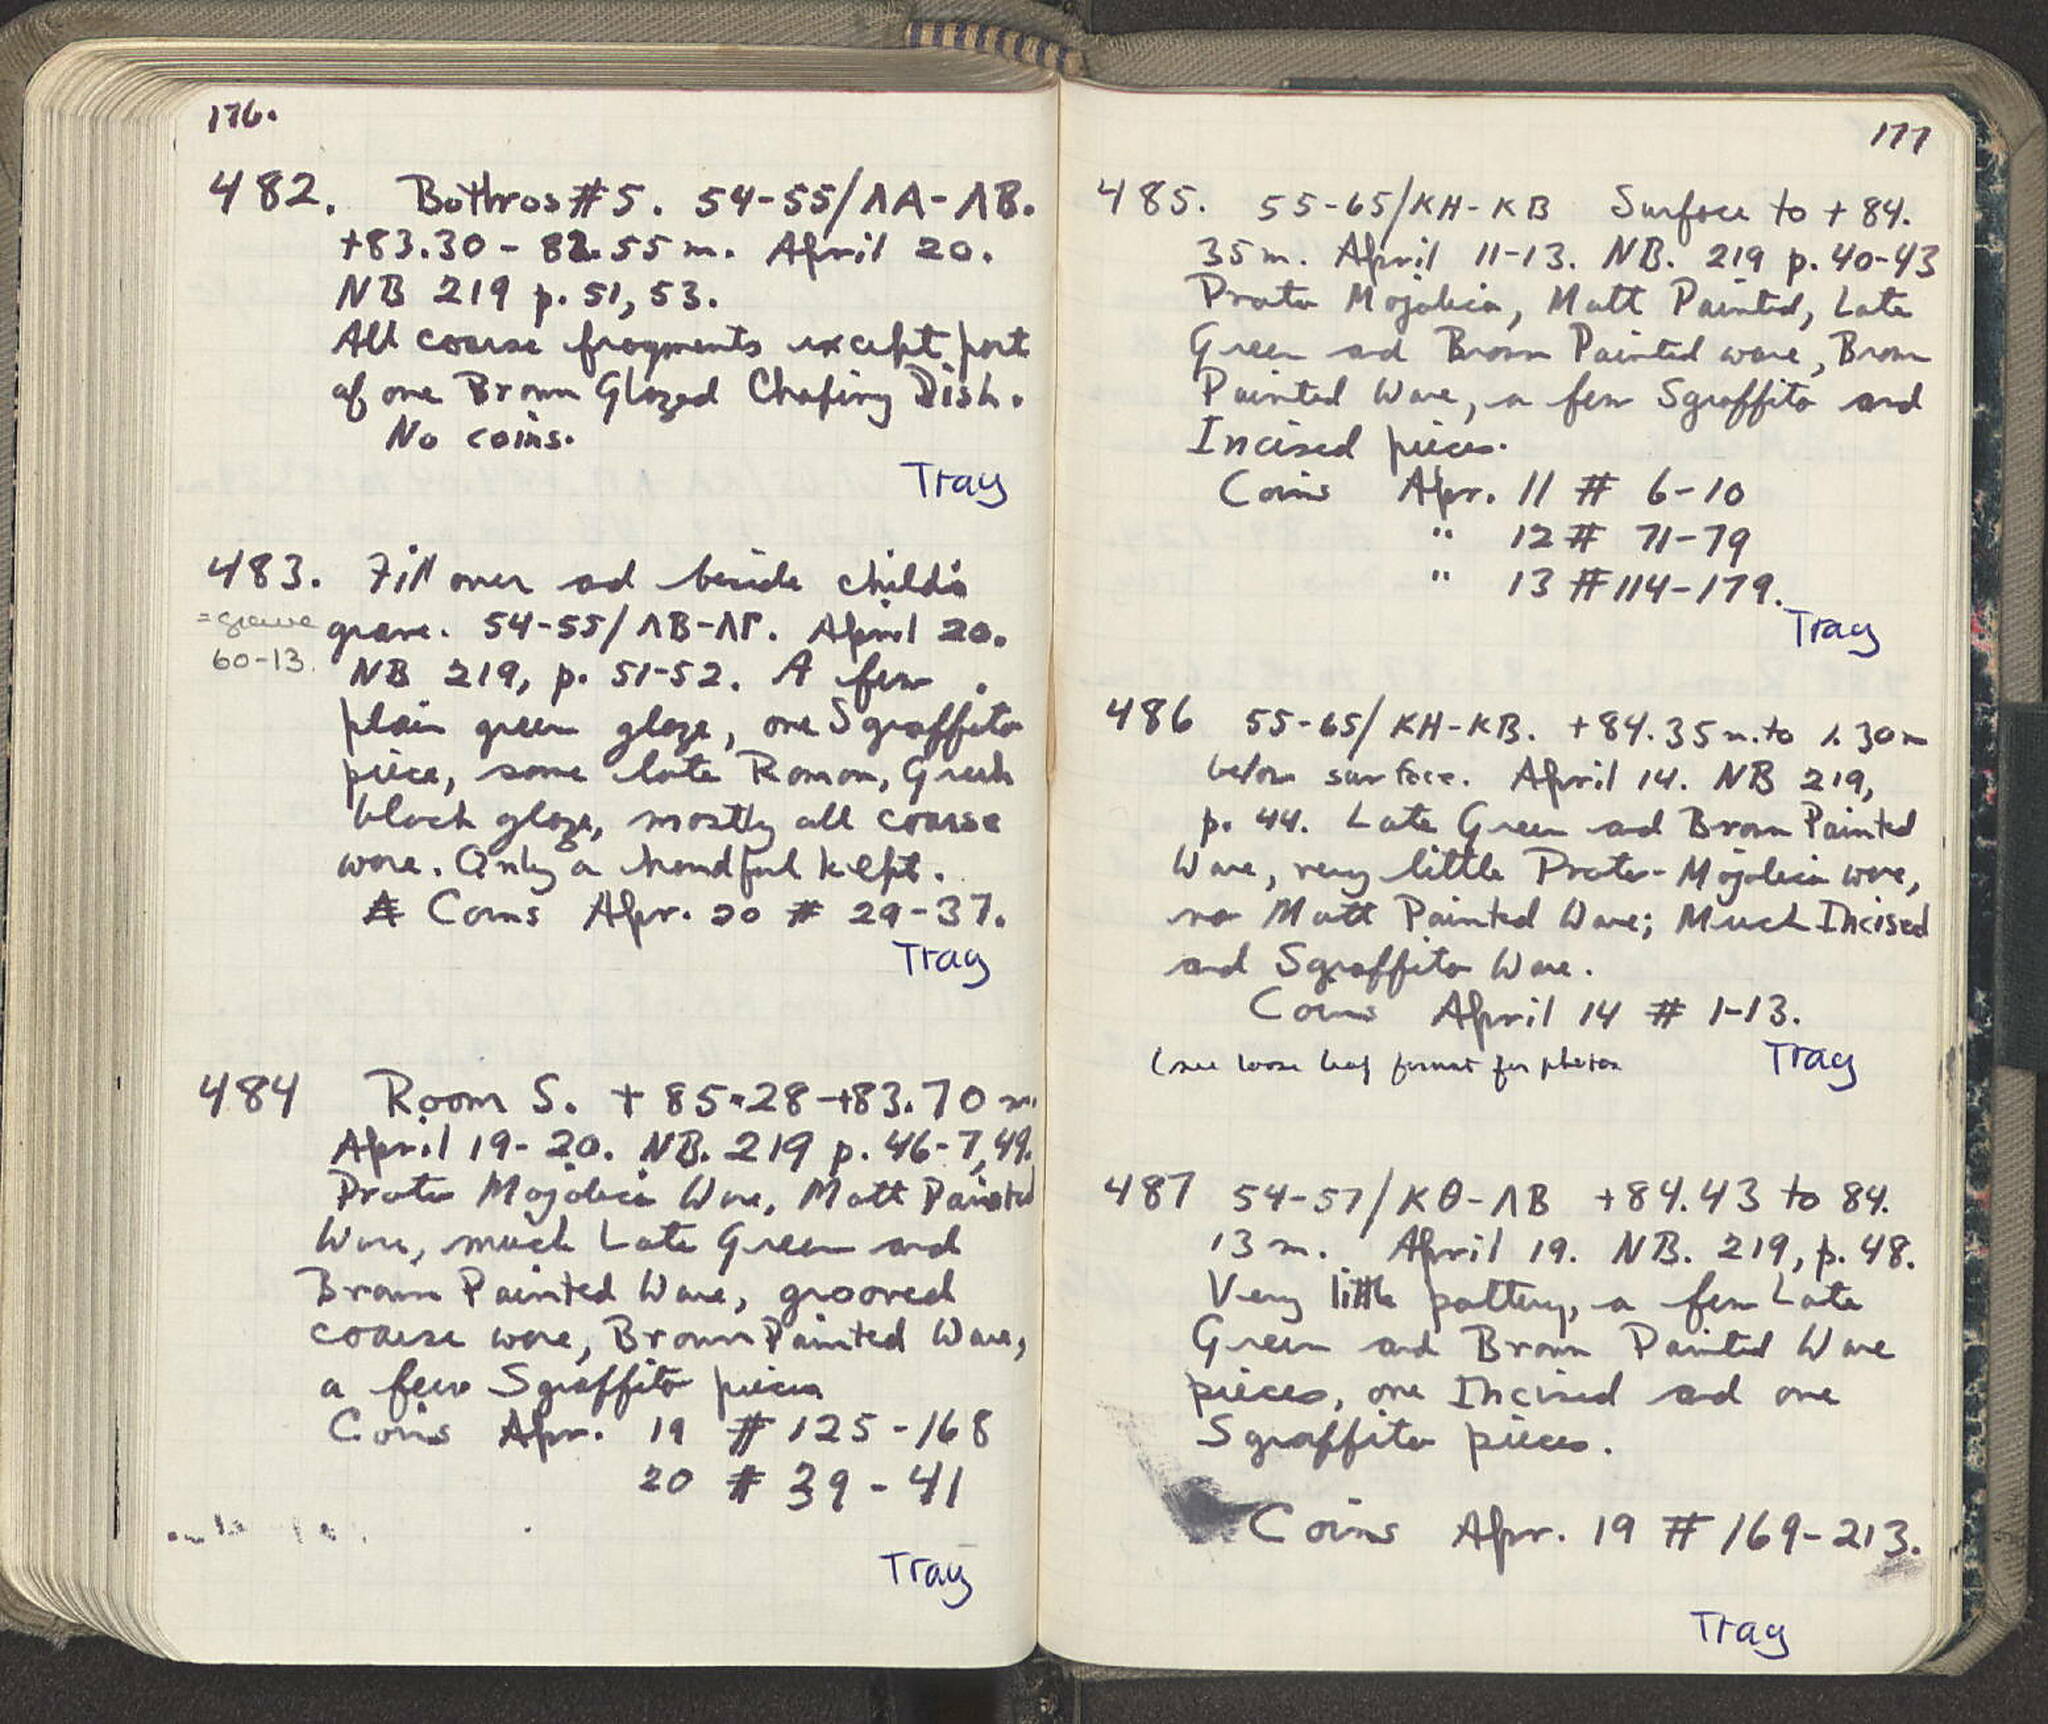 176.
482. Bothros #5. 54-55/ΛA-ΛB.
+83.30 - 82.55 m. April 20.
NB 219 p. 51, 53.
All coarse fragments except part
of one Brown Glazed Chafing Dish.
No coins.
Tray
483. Fill over and beside child's
=grave
grave. 54-55/ΛB-ΛΓ. April 20.
60-13.
NB 219, p. 51-52. A few
plain green glaze, one Sgraffito
piece, some late Roman, Greek
black glaze, mostly all coarse
ware. Only a handful kept.
Coins Apr. 20 # 29-37.
Tray
484 Room S. + 85.28-+83.70 m.
April 19-20. NB. 219 p. 46-7, 49.
Proto Majolica Ware, Matt Painted
Ware, much Late Green and
Brown Painted Ware, grooved
coarse ware, Brown Painted Ware,
a few Sgraffito pieces
Coins Apr. 19 # 125-168
20 # 39-41
Tray
177
485. 55-65/KH-KB Surface to +84.
35m. April 11-13. NB. 219 p. 40-43
Proto Majolica, Matt Painted, Late
Green and Brown Painted ware, Brown
Painted Ware, a few Sgraffito and
Incised pieces.
Coins Apr. 11 # 6-10
" 12 # 71-79
" 13 # 114-179.
Tray
486 55-65/KH-KB. +84.35 m. to 1.30m
below surface. April 14. NB 219,
p. 44. Late Green and Brown Painted
Ware, very little Proto-Majolica ware,
no Matt Painted Ware; Much Incised
and Sgraffito Ware.
Coins April 14 # 1-13.
(see loose leaf format for photos
Tray
487 54-57/KΘ-ΛB +84.43 to 84.
13 m. April 19. NB. 219, p. 48.
Very little pottery, a few Late
Green and Brown Painted Ware
pieces, one Incised and one
Sgraffito pieces.
Coins Apr. 19 # 169-213.
Tray